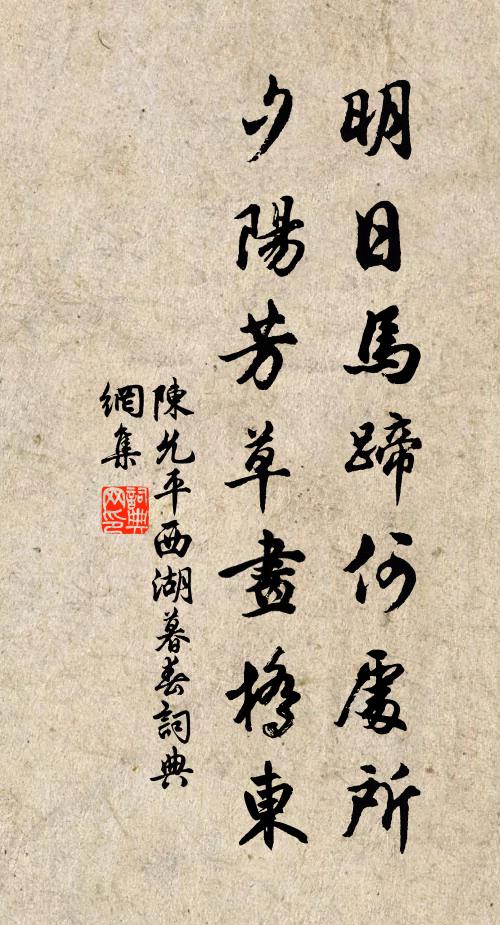 明日馬蹄何處所
夕陽芳草畫橋東
陳允平西湖暮春詞典
網集
詞典
网印